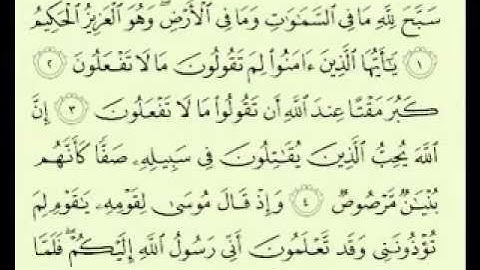 سَبَّحَ لِلَّهِ مَا فِي السَّمَٰوَٰتِ وَمَا فِي الْأَرْضِ ۖ وَهُوَ الْعَزِيزُ الْحَكِيمُ
﴿١﴾ يَٰٓأَيُّهَا الَّذِينَ ءَامَنُوا لِمَ تَقُولُونَ مَا لَا تَفْعَلُونَ ﴿٢﴾
كَبُرَ مَقْتًا عِندَ اللَّهِ أَن تَقُولُوا مَا لَا تَفْعَلُونَ ﴿٣﴾ إِنَّ
اللَّهَ يُحِبُّ الَّذِينَ يُقَٰتِلُونَ فِي سَبِيلِهِۦ صَفًّا كَأَنَّهُم
بُنْيَٰنٌ مَّرْصُوصٌ ﴿٤﴾ وَإِذْ قَالَ مُوسَىٰ لِقَوْمِهِۦ يَٰقَوْمِ لِمَ
تُؤْذُونَنِي وَقَد تَّعْلَمُونَ أَنِّي رَسُولُ اللَّهِ إِلَيْكُمْ ۖ فَلَمَّا